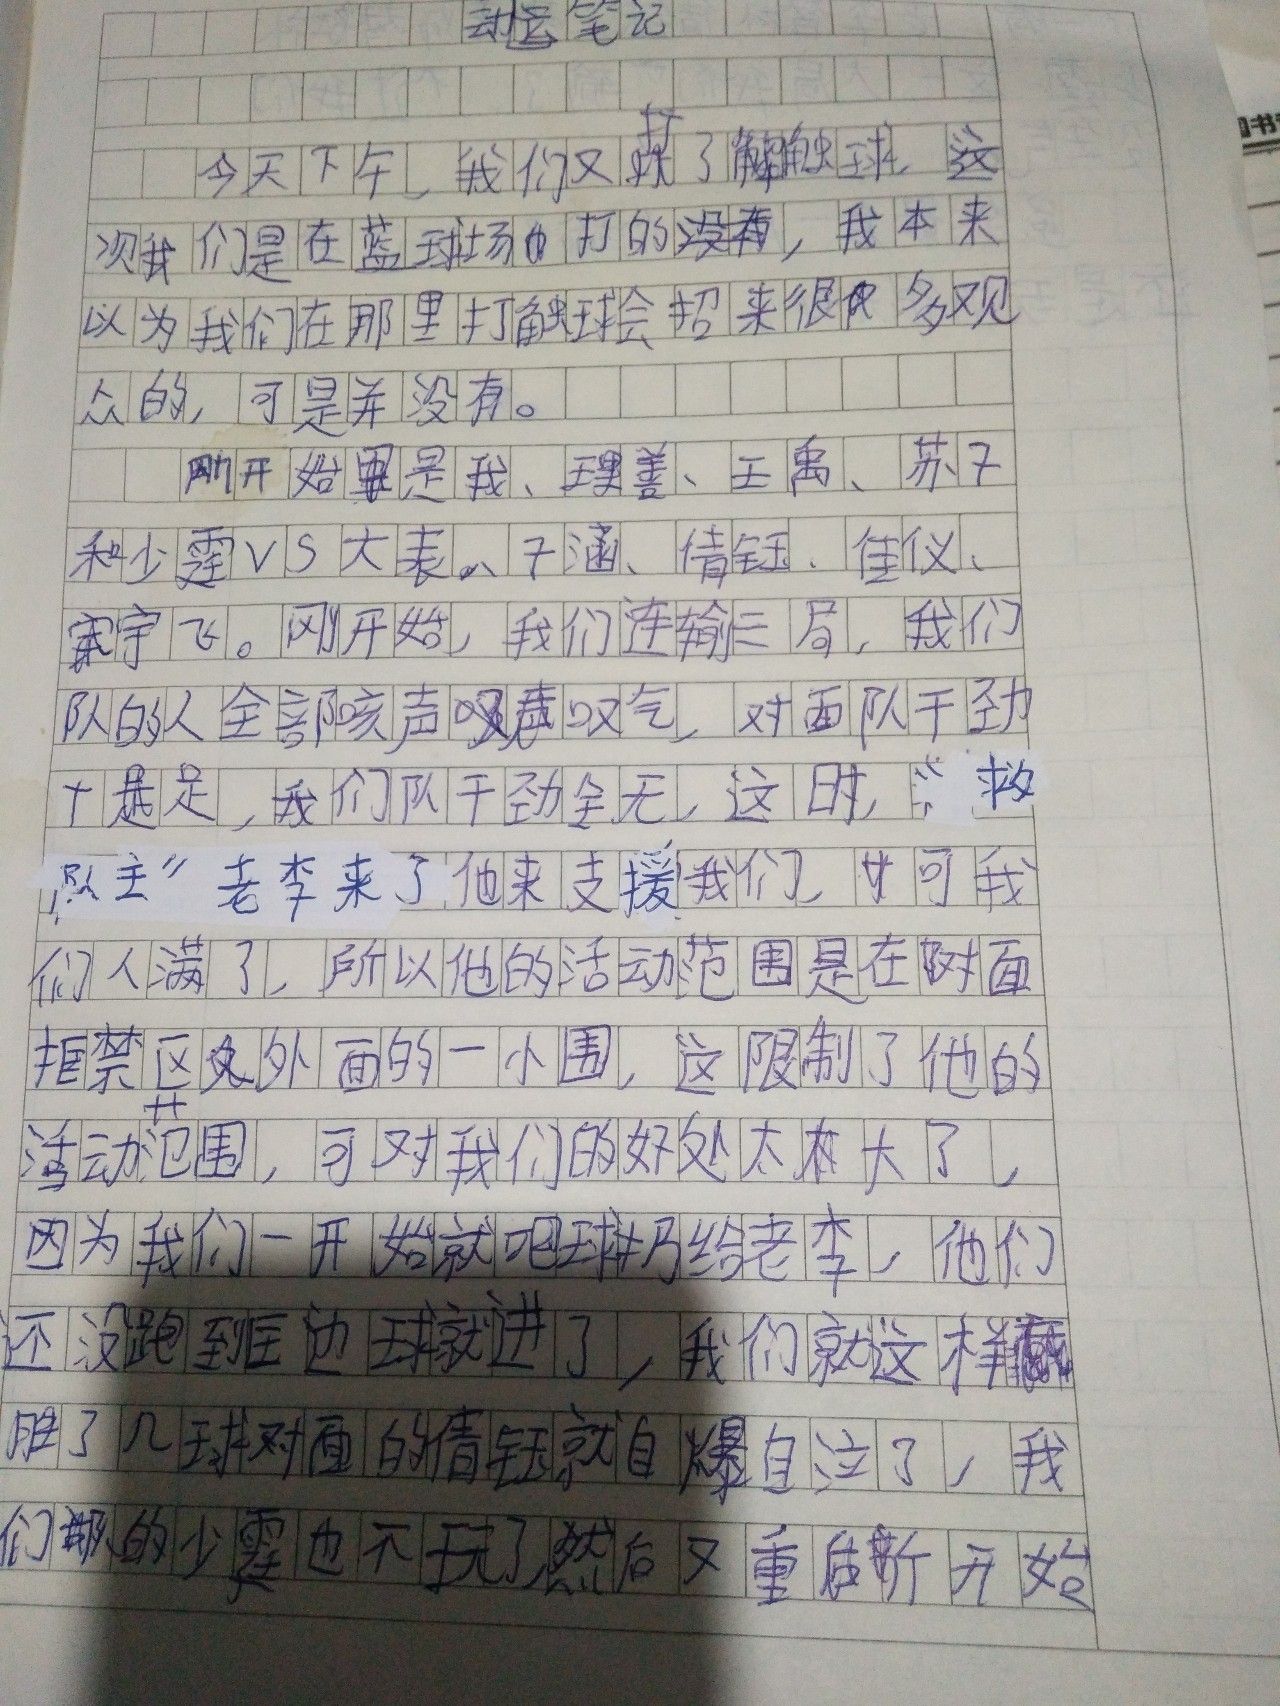 动运笔记
今天下午，我们又打了触球，这
次我们是在蓝球场打的，我本来
以为我们在那里打触球会招来很多观
众的，可是并没有。
刚开始是我、理善、王禹、苏子
和少霆VS大表、子涵、倩钰、佳仪、
宇飞。刚开始，我们连输三局，我们
队的人全部咳声叹气，对面队干劲
十足，我们队干劲全无，这时，“救
队主”老李来了他来支援我们，可我
们人满了，所以他的活动范围是在对面
拒禁区外面的一小围，这限制了他的
活动范围，可对我们的好处太大了，
因为我们一开始就吧球扔给老李，他们
还没跑到匡边球就进了，我们就这样
胜了几球对面的倩钰就自爆自泣了，我
们的少霆也不玩了然后又重新开始
图书